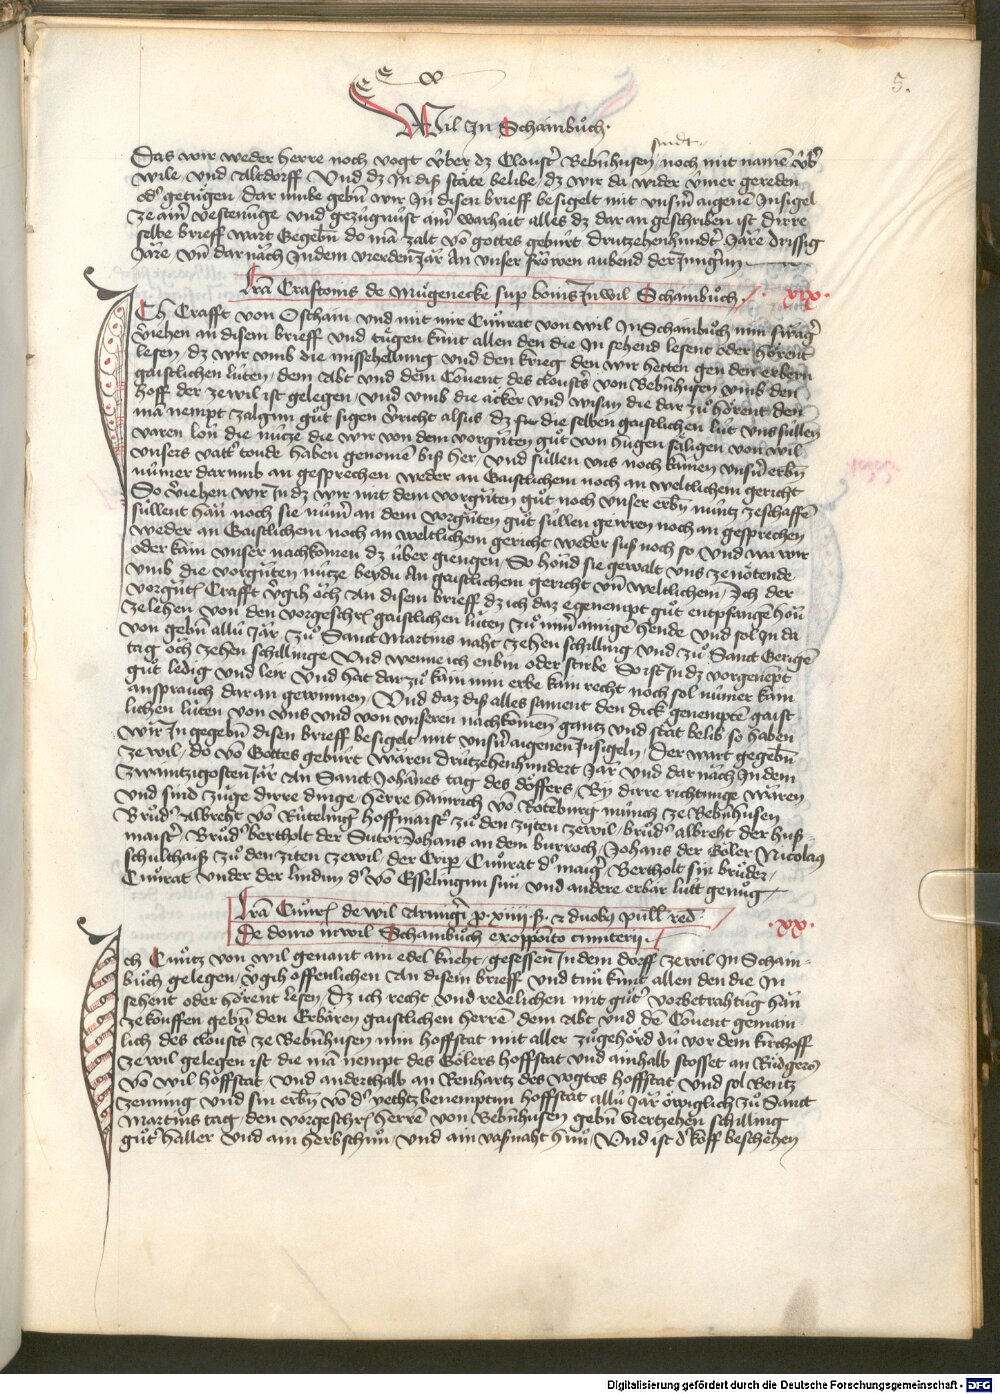 5.
Wil In Schainbůch.
sindt
Das wir weder herre noch vogt v̈ber dz Closter̄ Bebēhusen noch mit namē v̈b̄
wile, vnd Altdorff Vnd dz In diß stäte belibe, dz wir da wider v̈mer gereden
od' getůgen, Dar vmbe gebn̄ wir In disen brieff besigelt mit vnsn̄ aigene Insigel
ze aim̄ vestenūge vnd gezúgnúst aim̄ warhait alles dz dar an geschriben ist Dirre
selbe brieff wart Gegebn̄ do mā zalt vō gottes gebúrt drutzehenhundt̄ Jāre drissig
Jāre, vn̄ darnāch Indem vierden Jār An vnser fröwen aubend der Jungīn
Lrā Craftonis de Múgenecke sup bonis Inwil Schainbůch .xix.
Ch Crafft von Ostham vnd mit mir Cůnrat von wil In Schainbůch min swāḡ
v̄iehen an disem brieff vnd tůgen kunt allen den die In sehend lesent oder hörent
lesen, dz wir vmb die missehellung vnd den krieg den wir hetten gen den erbern̄
gaistlichen lúten, dem Abt vnd dem Couent des closters von Bebēhusen vmb den
hoff der ze wil ist gelegen, vnd vmb die äcker vnd wisan die dar zů hörent den
mā nempt zalgun gůt sigen v̄richt alsus dz fur die selben gaistlichen lút vns súllen
varen lon die núcze die wir von dem vorgūten gůt von hugen säligen von wil
vnsers vatt' tonde haben genomē biß her, vnd súllen vns noch kainen vnsn̄ erbn̄
númer darumb an gesprechen weder an Gaistlichem noch an weltlichem gericht
So v̄iehen wir In dz wir mit dem vorgūten gůt noch vnser erbn̄ nuntz zeschaffē
súllent hān noch sie núm̄ an dem vorgūten gůt súllen gerren noch an gesprechen
weder an Gaistlichem noch an weltlichem gericht weder suß noch so vnd wa wir
oder kain vnser nachkomen dz über giengen, So hond sie gewalt vns ze nötende
vmb die vorgūten nútze beydu An gaistlichem gericht vn̄ weltlichem, Ich der
vorgūt Crafft v̄gih öch An disem brieff dz ich daz egenempt gůt entpfangē hön
ze lehen von den vorgeschr̄ gaistlichen lúten zů minr̄ ainige hende vnd sol In da
von gebn̄ allú jār zů Sanct Martins naht zehen schilling vnd zů Sanct Gerigē
tag öch zehen schillinge Vnd wenne ich enbin oder stirbe So ist In dz vorgenēpt
gůt ledig vnd ler Vnd hāt darzů kain min erbe kain recht noch sol númer kain
ansprauch dar an gewinnen, Vnd daz diß alles sament den dick genemptē gaist
lichen lúten von vns vnd von vnseren nachkomen gantz vnd stät belib so haben
wir In gegebn̄ disen brieff besigelt mit vnsn̄ aigenen Insigeln, Der wart gegebn̄
ze wil, do vō Gottes gebúrt wāren drutzehenhundert Jār vnd dar nāch In dem
zwaintzigosten Jār an Sanct Johānes tag des döffers, By dirre richtunge wāren
vnd sind zúge dirre dinge, herre hainrich vō Roteburg múnch ze Bebēhusen
Brůd' Albreht vō Rútelīg hoffmaist' zů den zijten ze wil, brůd' albreht der huß
maist', Brůd' bertholt der Sutor Johans an dem burroch, Johans der Göler Nicolaus
schulthaiß zů den ziten ze wil, der Crip̄ Cůnrat d' maiḡ Bertholt sin brůder,
Cůnrat vnder der lindun d' vō Esselingun sun vnd andere erbar lútt genůg
Lrā Cůnr̄ de wil Armigī p xiiii ß. 2 duob9 pull red
De domo in wil Schainbůch exopposito cimiterij. .xx.
ch Cůntz von wil genant ain edel kneht, gesessen In dem dorff ze wil In Schain-
bůch gelegen, v̄gih offenlichen An disem brieff vnd tun kunt allen den die In
sehent oder hörent lesen, Dz ich recht vnd redelichen mit gůt' vorbetrahtūg hān
ze köuffen gebn̄ den Erbären gaistlichen herrē dem Abt vnd dē Couent gemain
lich des closters ze Bebēhusen min hoffstat mit aller zůgehörd dú vor dem kirchoff
ze wil gelegen ist die mā nempt des Gölers hoffstat vnd ainhalb stosset an Rúdgers
vō wil hoffstat vnd anderthalb an Renhartz des vogtes hoffstat vnd sol Bentz
zenning vnd sin erbn̄ vō d' yechtzbenemptun hoffstat allú Jār öwiglich zů Sanct
Martins tag, den vorgeschr̄ herrē von Bebēhusen gebn̄ viertzehen schilling
gůt' haller vnd ain herbsthůn, vnd ain vaßnaht hůn, Vnd ist d' köff beschehen
Digitalisierung gefördert durch die Deutsche Forschungsgemeinschaft - DFG